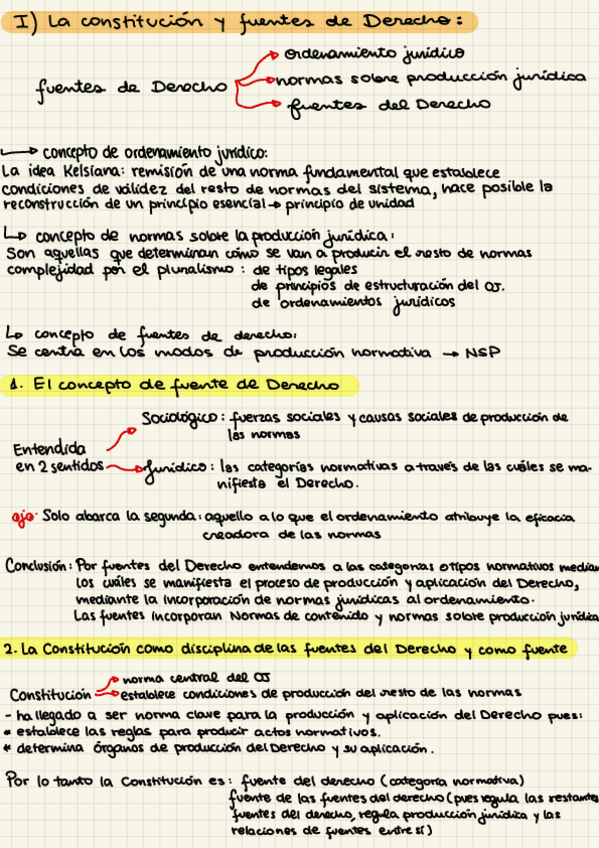 I) La constitución y fuentes de Derecho:
fuentes de Derecho
ordenamiento jurídico
normas sobre producción jurídica
fuentes del Derecho
concepto de ordenamiento jurídico:
La idea Kelsiana: remisión de una norma fundamental que establece
condiciones de validez del resto de normas del sistema, hace posible la
reconstrucción de un principio esencial → principio de unidad
concepto de normas sobre la producción jurídica:
Son aquellas que determinan cómo se van a producir el resto de normas
complejidad por el pluralismo: de tipos legales
de principios de estructuración del OJ.
de ordenamientos jurídicos
concepto de fuentes de derecho:
Se centra en los modos de producción normativa → NSP
1. El concepto de fuente de Derecho
Entendida
en 2 sentidos
Sociológico: fuerzas sociales y causas sociales de producción de
las normas
Jurídico: las categorías normativas a través de las cuáles se ma-
nifiesta el Derecho.
ojo: Solo abarca la segunda: aquello a lo que el ordenamiento atribuye la eficacia
creadora de las normas
Conclusión: Por fuentes del Derecho entendemos a las categorias o tipos normativos median
los cuáles se manifiesta el proceso de producción y aplicación del Derecho,
mediante la incorporación de normas jurídicas al ordenamiento.
Las fuentes incorporan Normas de contenido y normas sobre producción jurídica
2. La Constitución como disciplina de las fuentes del Derecho y como fuente
Constitución
norma central del OJ
establece condiciones de producción del resto de las normas
- ha llegado a ser norma clave para la producción y aplicación del Derecho pues:
* establece las reglas para producir actos normativos.
* determina órganos de producción del Derecho y su aplicación.
Por lo tanto la Constitución es: fuente del derecho (categoría normativa)
fuente de las fuentes del derecho (pues regula las restantes
fuentes del derecho, regula producción jurídica y las
relaciones de fuentes entre sí)